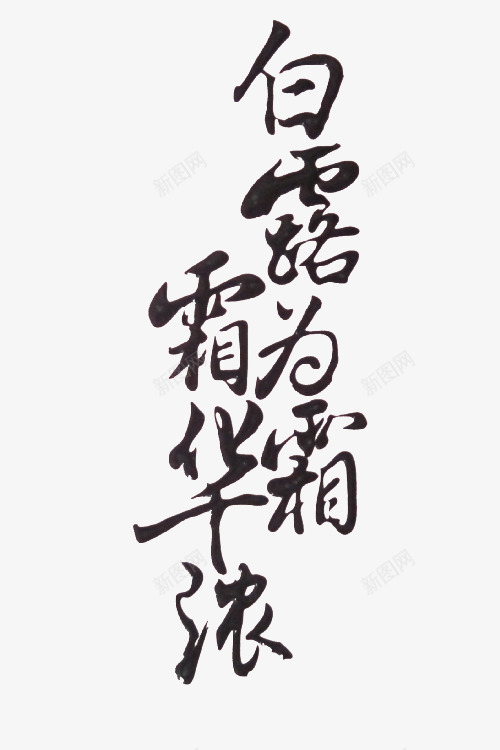 白露为霜
霜华浓
新图网
新图网
新图网
新图网
新图网
新图网